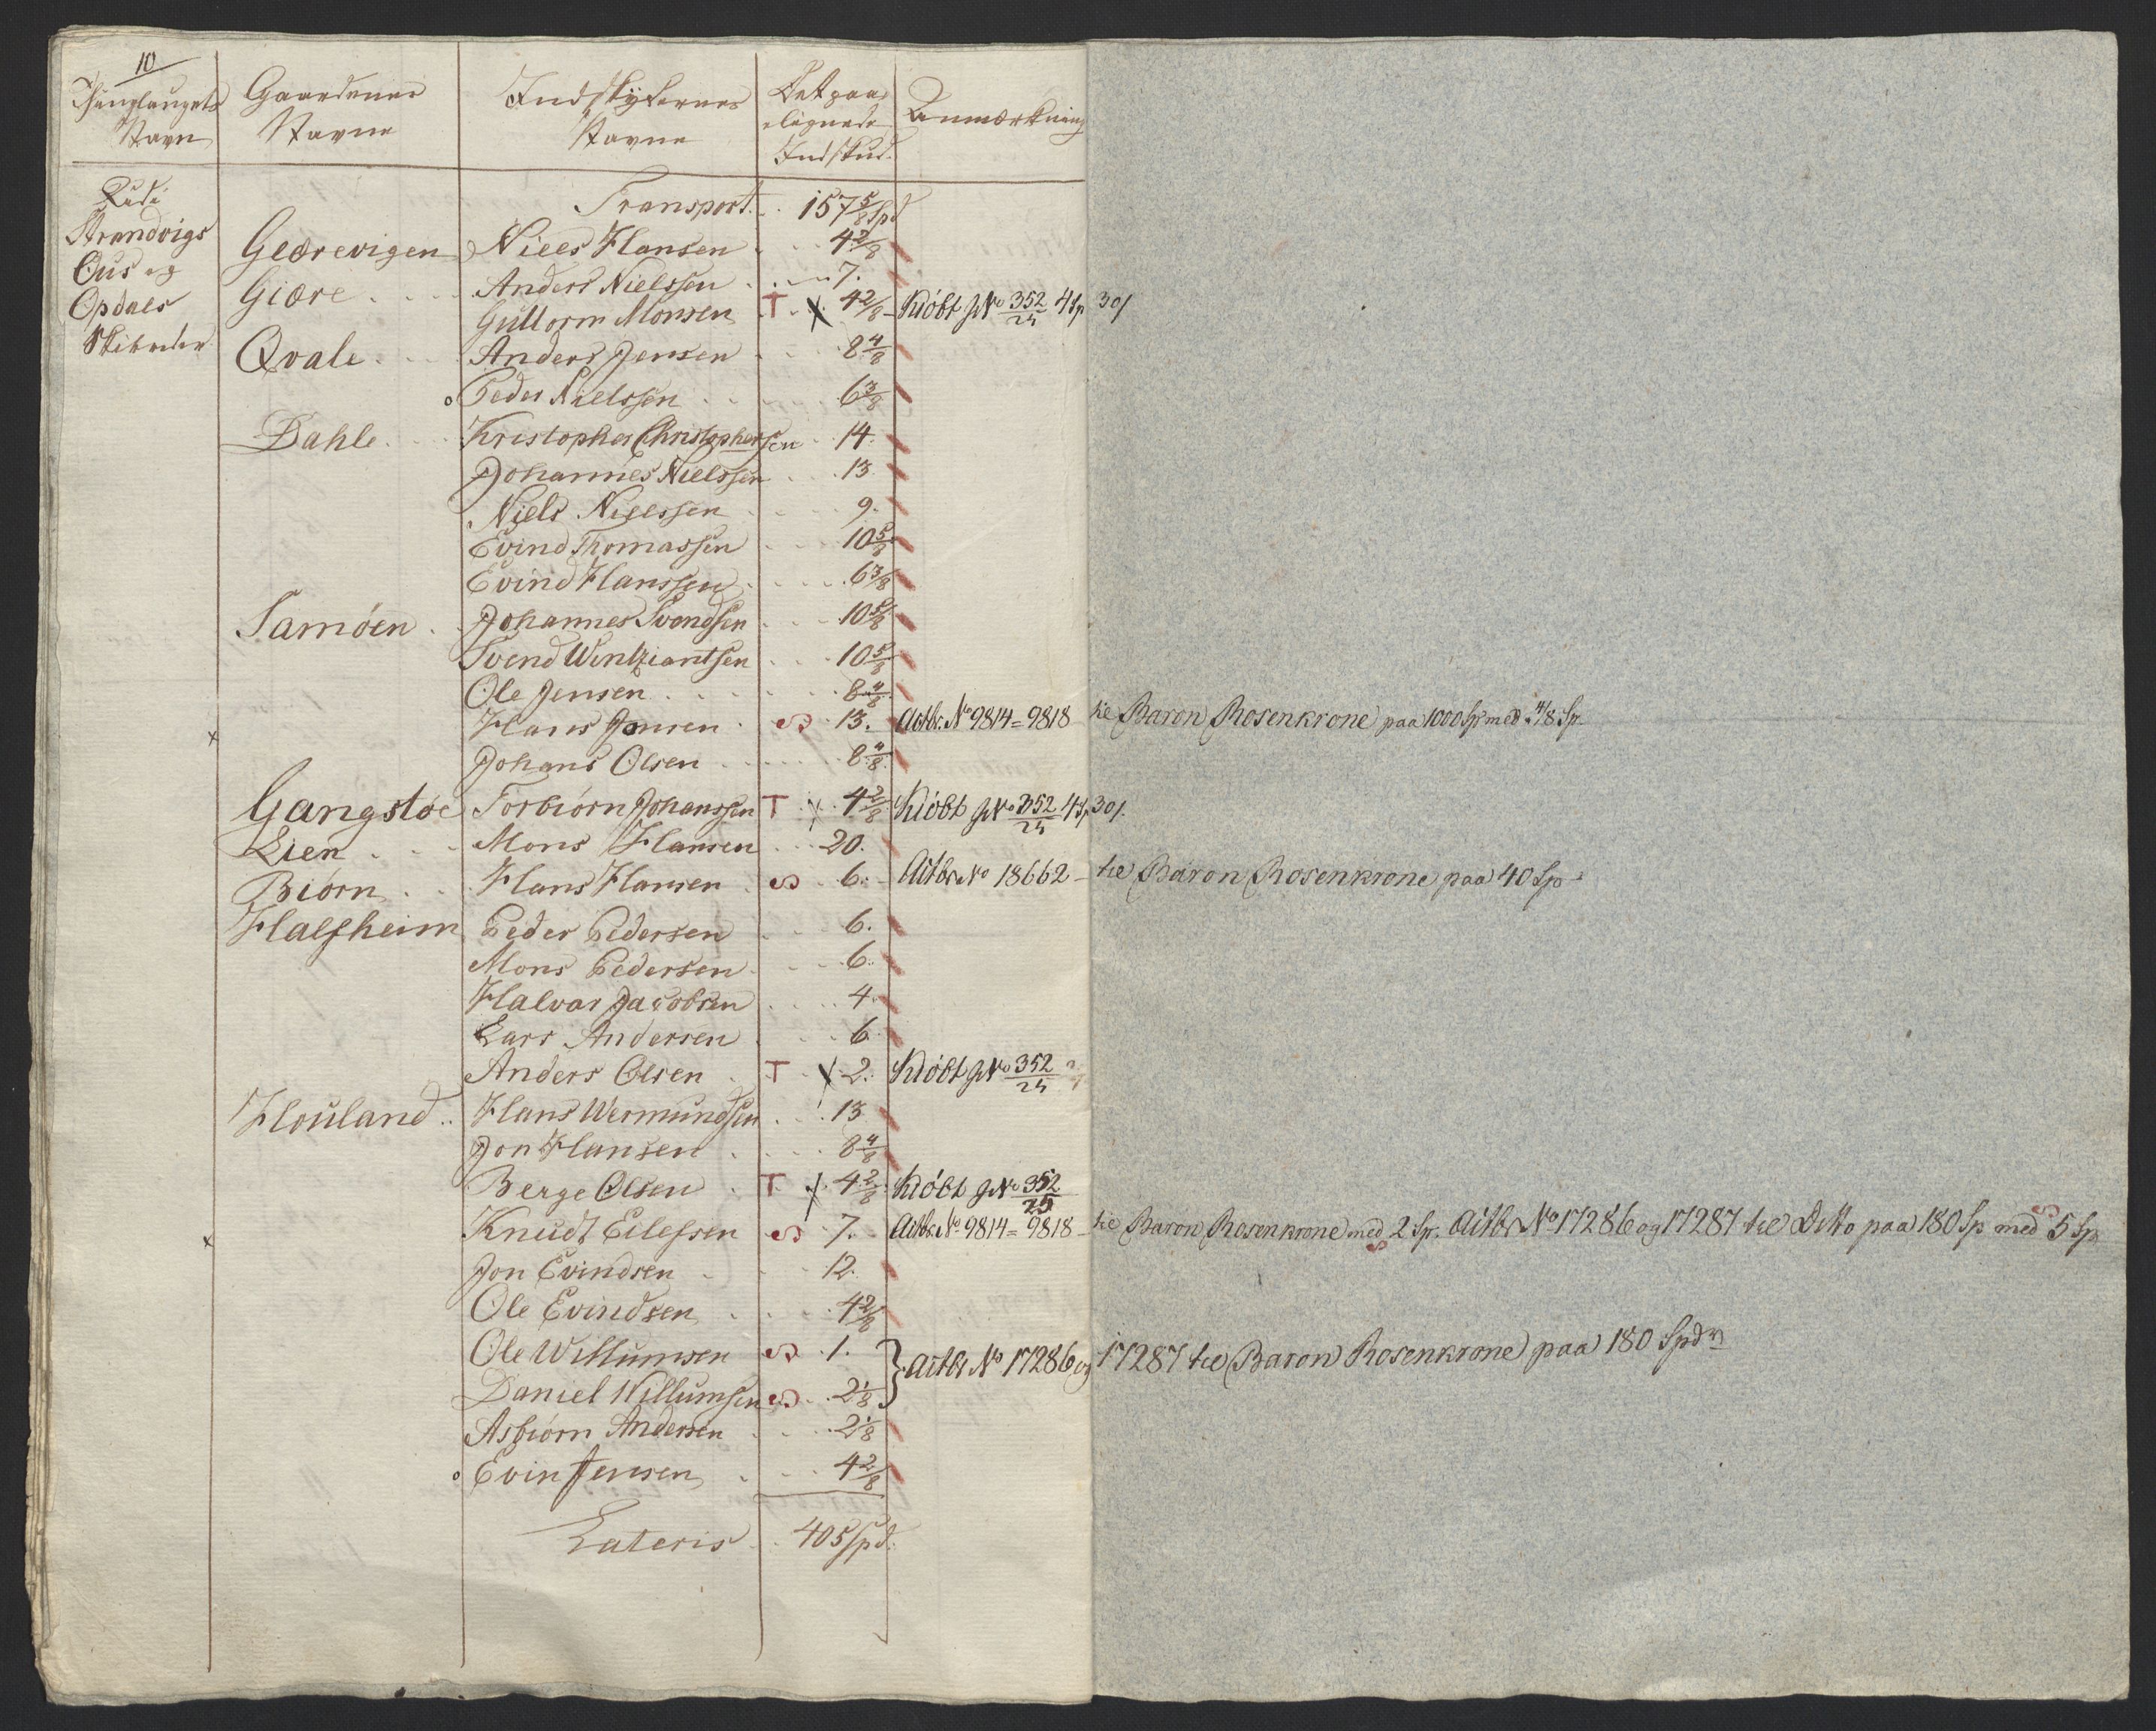 10
Thinglaugets Navn
Gaardenes Navne
Indskyternes Navne
Det paalignede Indskud.
Anmærkning
Strandvigs
Ous og
Opdals
Skibreder
Transport. 157 5/8 Spd
Gierevigen Niels Hansen 4 2/8
Giøre Anders Nielssen 7.
Guttorm Monsen T 4 2/8 Kiöbt No 352/25 4 Sp 30/
Qvale Anders Jensen 8 4/8
Peder Nielssen 6 3/8
Dahle Kristopher Christophersen 14.
Johannes Nielssen 13
Niels Nielssen 9.
Evind Thomassen 10 5/8
Evind Hanssen 6 3/8
Samöen Johannes Svendsen 10 5/8
Svend Wintziantsen 10 5/8
Ole Jensen 8 4/8
Hans Jonsen 13. Actbr. No 9814 = 9818 til Baron Rosenkrone paa 1000 Sp med 4/8 Sp.
Johans Olsen 8 4/8
Gangstöe Torbiörn Johanssen T 4 2/8 Kiöbt No 352/25 4 Sp 30/.
Lien Mons Hansen 20.
Biörn Hans Hansen 6. Actbr No 18662 til Baron Rosenkrone paa 40 Sp
Halfheim Peder Pedersen 6.
Mons Pedersen 6.
Halvar Jacobsen 4.
Lars Andersen 6
Anders Olsen T 2. Kiöbt No 352/25
Houland Hans Wermundsen 13
Jon Hansen 8 4/8
Berge Olsen T 4 2/8 Kiöbt No 352/25
Knudt Eilefsen 7. Actbr. No 9814 = 9818 til Baron Rosenkrone med 2 Sp. Actbr No 17286 og 17287 til Ditto paa 180 Sp med 5 Sp
Jon Evindsen 12.
Ole Evindsen 4 2/8
Ole Willumsen 1. Actbr No 17286 og 17287 til Baron Rosenkrone paa 180 Spd
Daniel Willumsen 2 1/8
Asbiörn Andersen 2 1/8
Evin Jensen 4 2/8
Lateris 405 Spd.